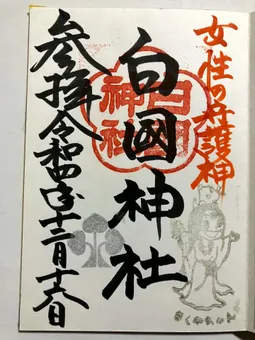 女性の守護神
白國神社
白国神社
参拝令和四年十二月十六日
さくやちゃん